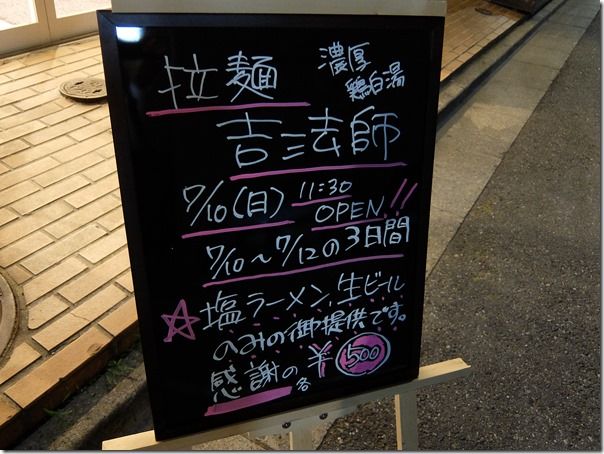 拉麺
濃厚
鶏白湯
吉法師
7/10(日) 11:30
OPEN!!
7/10～7/12の3日間
☆塩ラーメン、生ビール
のみの御提供です。
感謝の各¥500